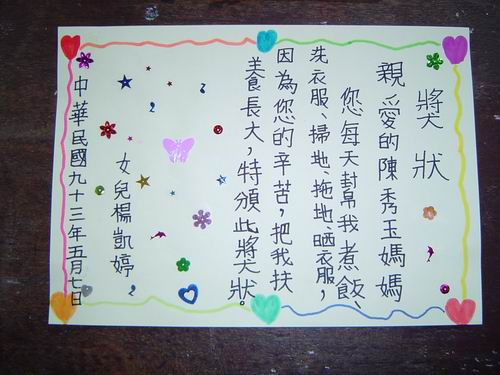 獎狀
親愛的陳秀玉媽媽
您每天封幫我煮飯、
洗衣服、掃地、拖地、晒衣服，
因為您的辛苦，把我扶
養長大，特頒此獎狀。
女兒楊凱婷，
中華民國九十三年五月七日